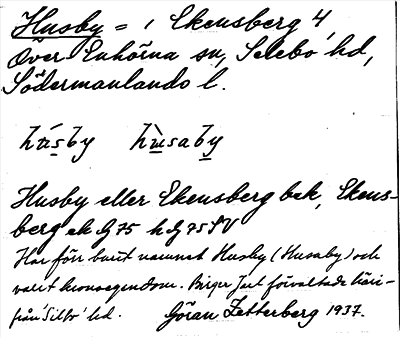 Husby = 1 Ekensberg 4,
Över Enhörna sn, Selebo hd,
Södermanlands l.
hú̱sby hù̱saby̱
Husby eller Ekensberg bek, Ekens-
berg ek bg 75 hbg 75 SV
Har förr burit namnet Husby (Husaby) och
varit kronoegendom. Birger Jarl förvaltade häri-
från Silbo hd. Göran Zetterberg 1937.